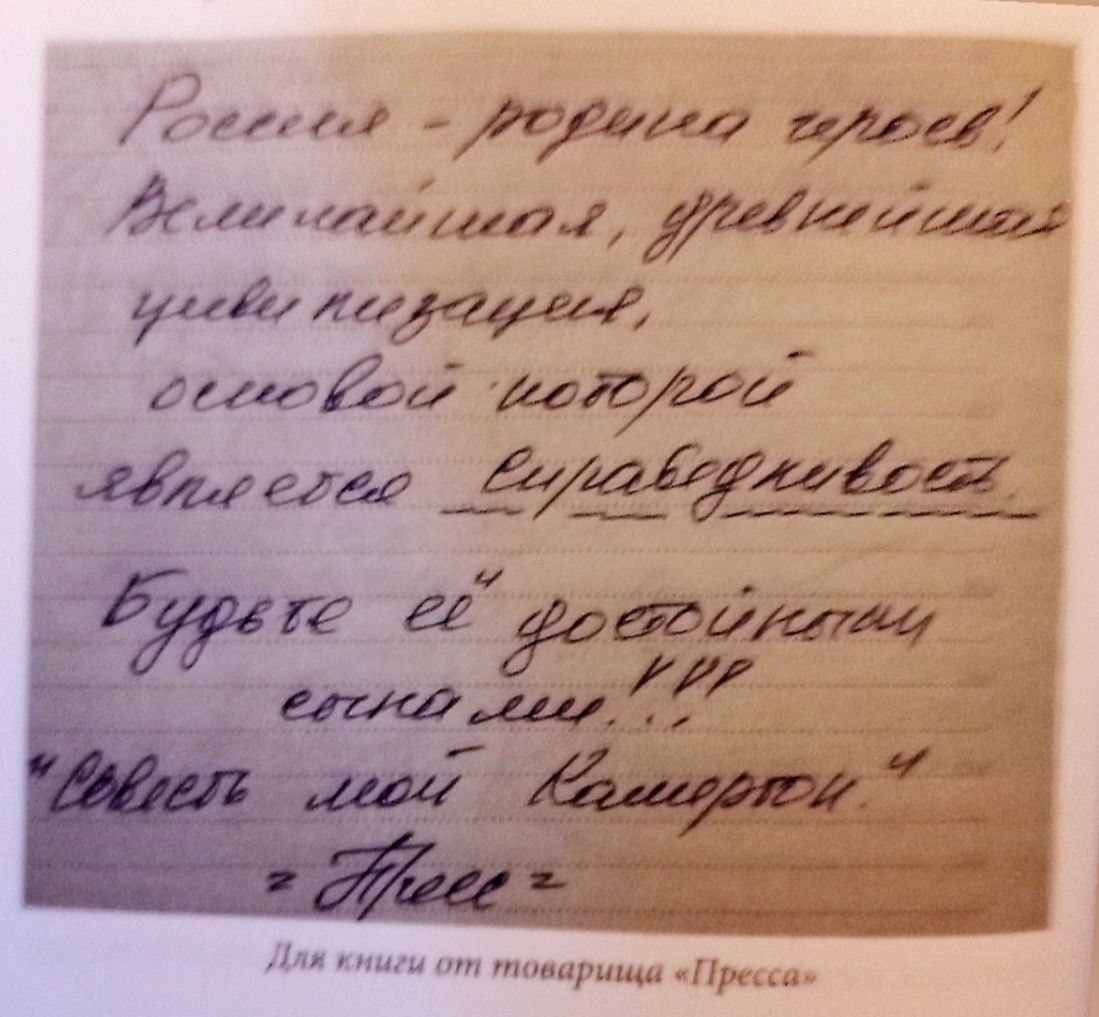 Россия - родина героев!
Величайшая, древнейшая
цивилизация,
основой которой
является Справедливость.
Будьте её достойными
сынами!!!
"Совесть мой Камертон."
= Пресс =
Для книги от товарища «Пресса»